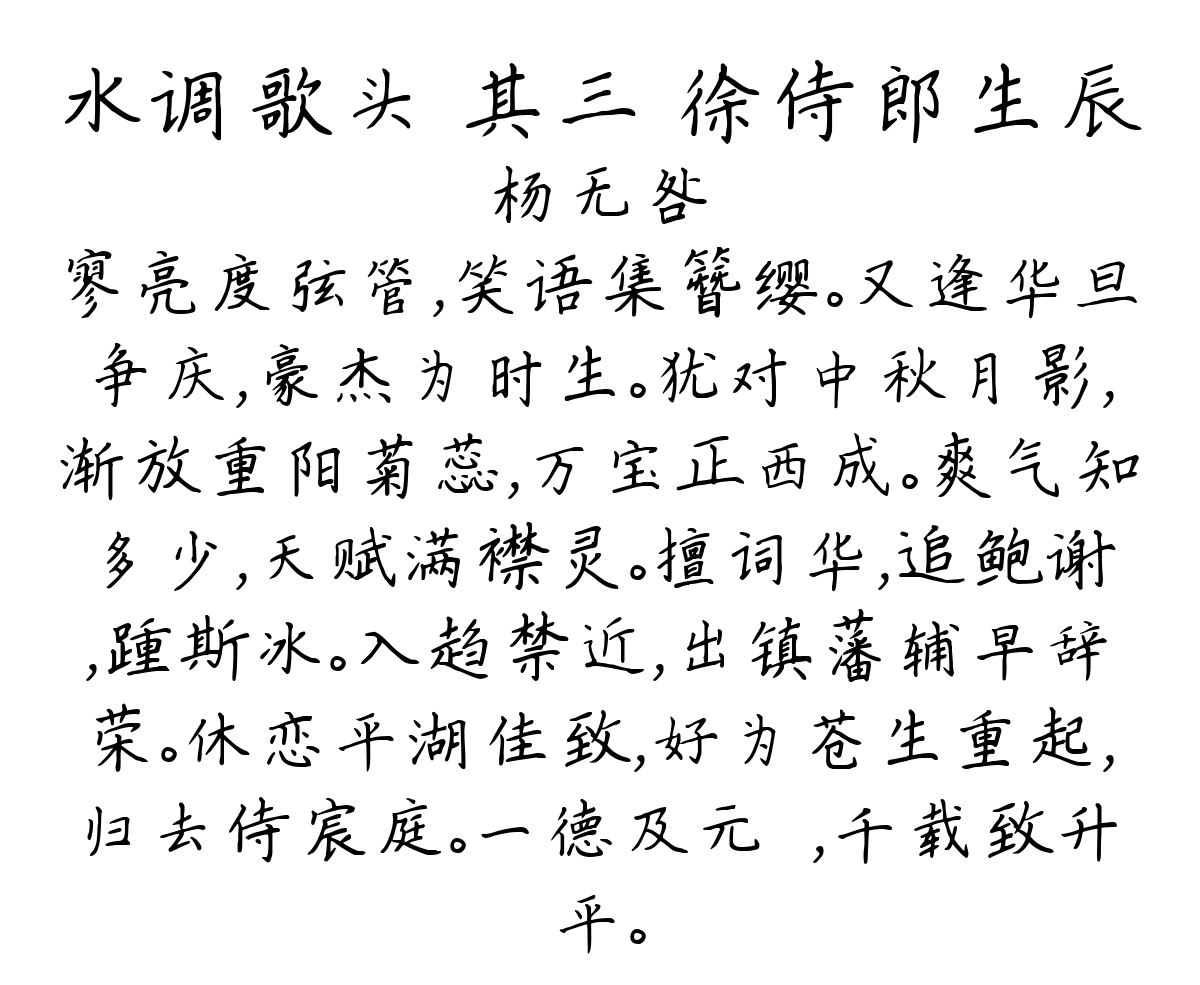 水调歌头 其三 徐侍郎生辰
杨无咎
寥亮度弦管,笑语集簪缨。又逢华旦
争庆,豪杰为时生。犹对中秋月影,
渐放重阳菊蕊,万宝正西成。爽气知
多少,天赋满襟灵。擅词华,追鲍谢
,踵斯冰。入趋禁近,出镇藩辅早辞
荣。休恋平湖佳致,好为苍生重起,
归去侍宸庭。一德及元 ,千载致升
平。